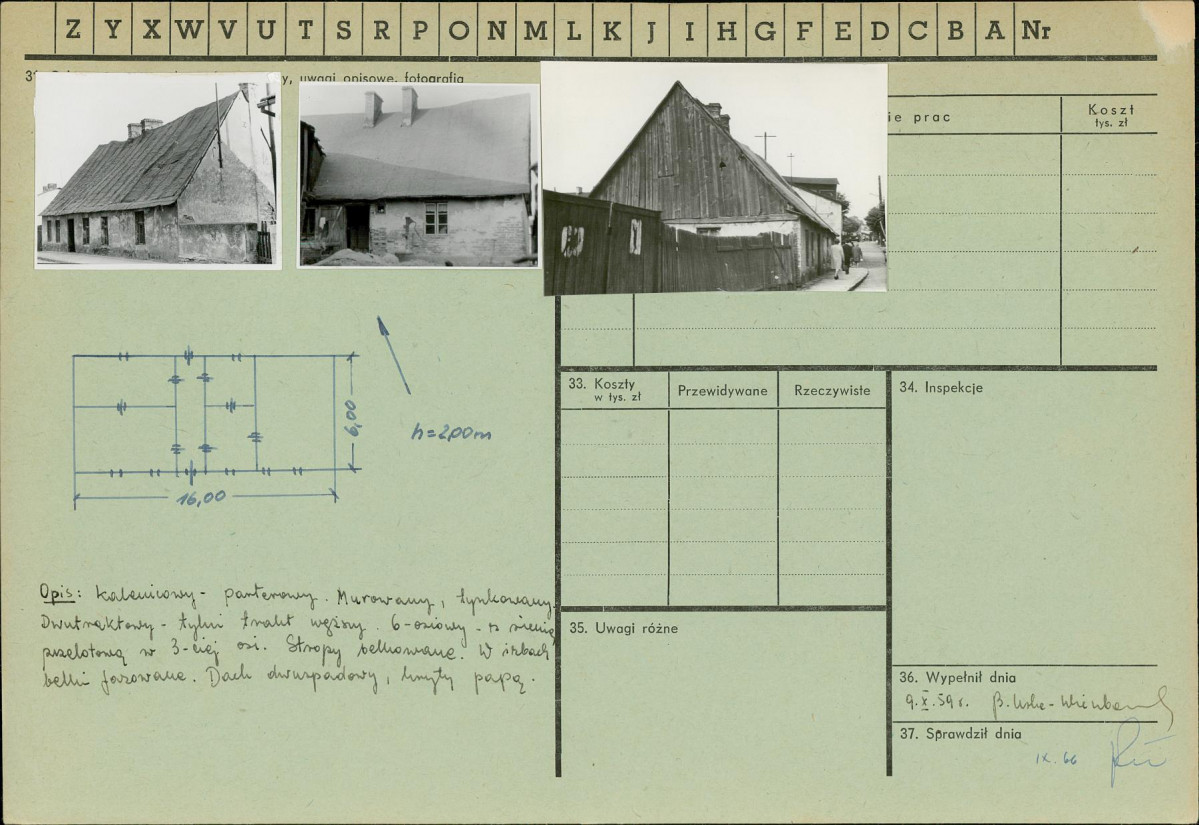 Z Y X W V U T S R P O N M L K J I H G F E D C B A Nr
3
y, uwagi opisowe, fotografia
ie prac
Koszt
tys. zł
6,00
h=2,00m
16,00
33. Koszty
w tys. zł
Przewidywane
Rzeczywiste
34. Inspekcje
Opis: kalenicowy - parterowy. Murowany, tynkowany.
Dwutraktowy - tylni trakt węższy. 6-osiowy - z sienią
przelotową w 3-ciej osi. Stropy belkowane. W izbach
belki fazowane. Dach dwuspadowy, kryty papą.
35. Uwagi różne
36. Wypełnił dnia
9.X.59r. B.
37. Sprawdził dnia
IX. 66